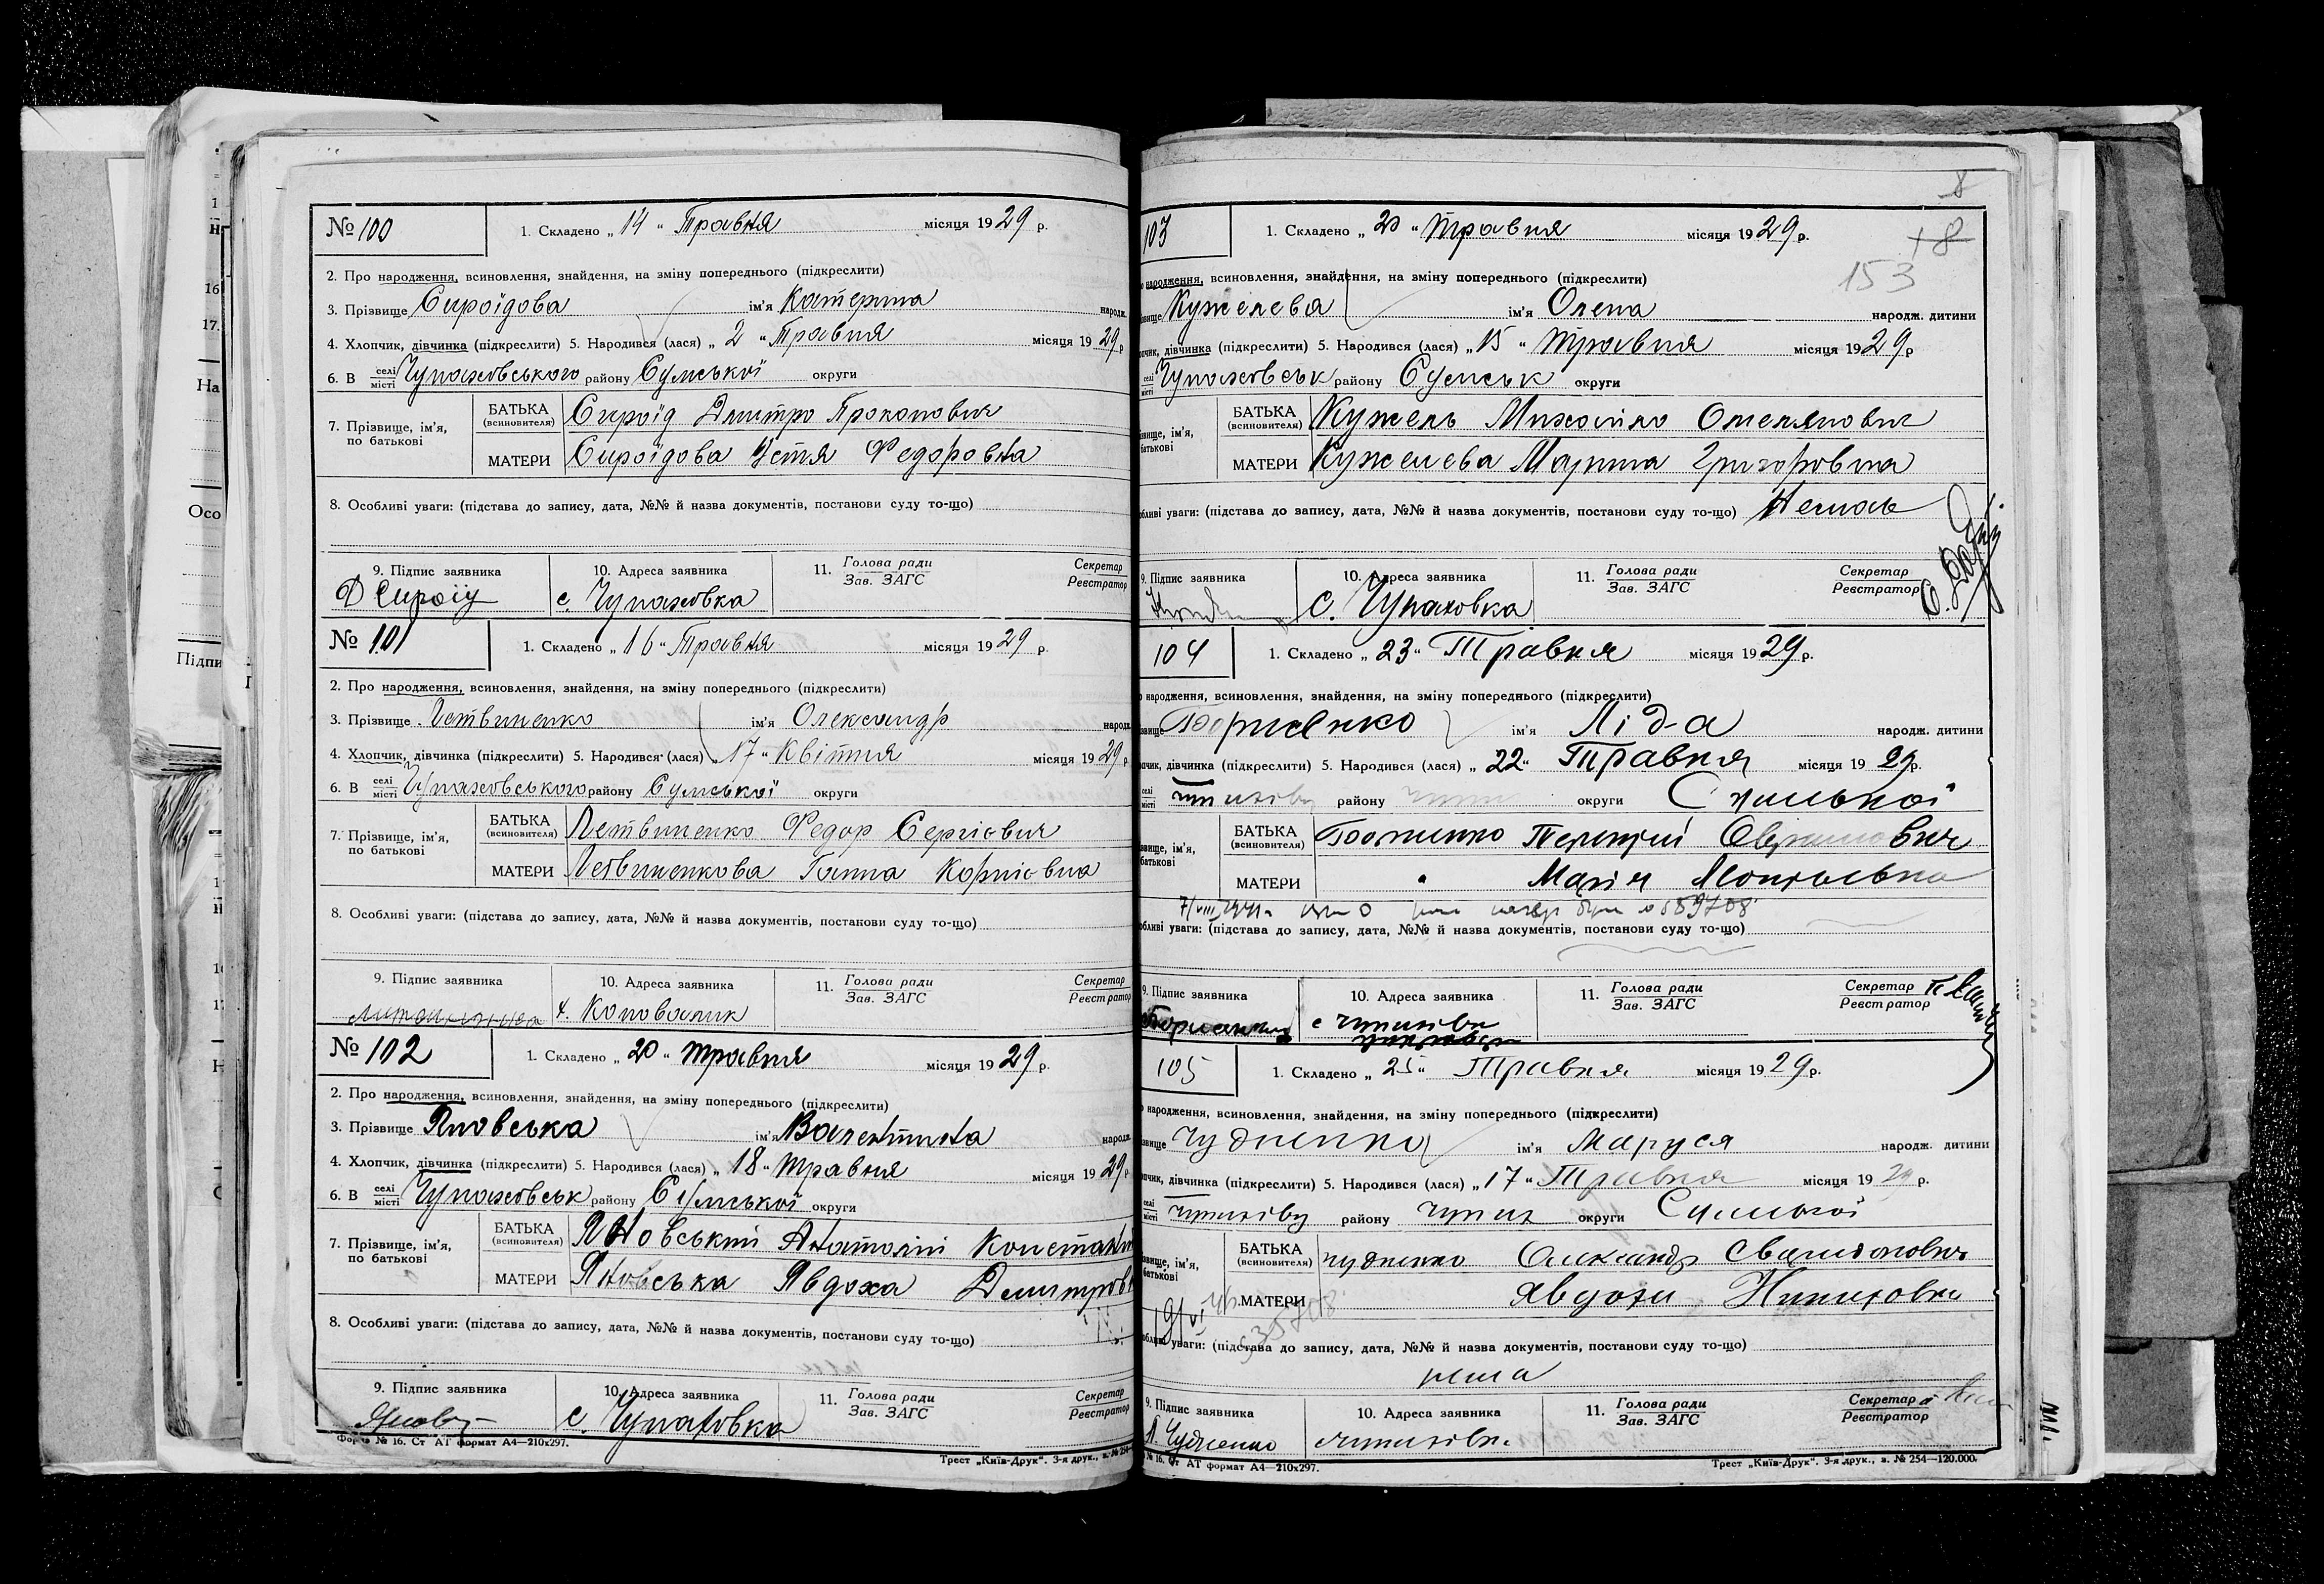 № 100
1. Складено „ 14 “ Травня місяця 1929 р.
2. Про народження, всиновлення, знайдення, на зміну попереднього (підкреслити)
3. Прізвище Сироїдова ім'я Катерина народж.
4. Хлопчик, дівчинка (підкреслити) 5. Народився (лася) „ 2 “ Травня місяця 1929 р
6. В селі місті Чупаховського району Сумської округи
7. Прізвище, ім'я, по батькові
БАТЬКА (всиновителя) Сироїд Дмитро Прокопович
МАТЕРИ Сироїдова Устя Федоровна
8. Особливі уваги: (підстава до запису, дата, №№ й назва документів, постанови суду то-що)
9. Підпис заявника 10. Адреса заявника 11. Голова ради Зав. ЗАГС Секретар Реєстратор
Д Сироїд с. Чупаховка
№ 101
1. Складено „ 16 “ Травня місяця 1929 р.
2. Про народження, всиновлення, знайдення, на зміну попереднього (підкреслити)
3. Прізвище Летвиненко ім'я Олександр народж
4. Хлопчик, дівчинка (підкреслити) 5. Народився (лася) „ 17 “ Квітня місяця 1929 р
6. В селі місті Чупаховського району Сумської округи
7. Прізвище, ім'я, по батькові
БАТЬКА (всиновителя) Летвиненко Федор Сергієвич
МАТЕРИ Летвиненкова Ганна Корнієвна
8. Особливі уваги: (підстава до запису, дата, №№ й назва документів, постанови суду то-що)
9. Підпис заявника 10. Адреса заявника 11. Голова ради Зав. ЗАГС Секретар Реєстратор
х. Коновалик
№ 102
1. Складено „ 20 “ травня місяця 1929 р.
2. Про народження, всиновлення, знайдення, на зміну попереднього (підкреслити)
3. Прізвище Яновська ім'я Валентина народж
4. Хлопчик, дівчинка (підкреслити) 5. Народився (лася) „ 18 “ травня місяця 1929 р
6. В селі місті Чупаховськ району Сумської округи
7. Прізвище, ім'я, по батькові
БАТЬКА (всиновителя) Яновський Анатолій Констант
МАТЕРИ Яновська Явдоха Дмитров
8. Особливі уваги: (підстава до запису, дата, №№ й назва документів, постанови суду то-що)
9. Підпис заявника 10. Адреса заявника 11. Голова ради Зав. ЗАГС Секретар Реєстратор
с. Чупаховка
Форма № 16. Ст АТ формат А4—210х297.
Трест „Київ-Друк“. 3-я друк., з. № 254
8
18
153
103
1. Складено „ 20 “ травня місяця 1929 р.
народження, всиновлення, знайдення, на зміну попереднього (підкреслити)
Кужелева ім'я Олена народж. дитини
дівчинка (підкреслити) 5. Народився (лася) „ 15 “ травня місяця 1929 р
селі місті Чупаховськ району Сумськ округи
БАТЬКА (всиновителя) Кужель Михайло Омелянович
МАТЕРИ Кужелева Марина Григоровна
уваги: (підстава до запису, дата, №№ й назва документів, постанови суду то-що) Немає
9. Підпис заявника 10. Адреса заявника 11. Голова ради Зав. ЗАГС Секретар Реєстратор
с. Чупаховка
104
1. Складено „ 23 “ Травня місяця 1929 р.
народження, всиновлення, знайдення, на зміну попереднього (підкреслити)
Борисенко ім'я Ліда народж. дитини
дівчинка (підкреслити) 5. Народився (лася) „ 22 “ Травня місяця 1929 р.
селі місті району округи Сумської
БАТЬКА (всиновителя)
МАТЕРИ " Марія
уваги: (підстава до запису, дата, №№ й назва документів, постанови суду то-що)
9. Підпис заявника 10. Адреса заявника 11. Голова ради Зав. ЗАГС Секретар Реєстратор
105
1. Складено „ 25 “ Травня місяця 1929 р.
народження, всиновлення, знайдення, на зміну попереднього (підкреслити)
Чудненко ім'я Маруся народж. дитини
дівчинка (підкреслити) 5. Народився (лася) „ 17 “ Травня місяця 1929 р.
селі місті району Чупах округи Сумської
БАТЬКА (всиновителя) Чудненко Олександр
МАТЕРИ Явдоха
уваги: (підстава до запису, дата, №№ й назва документів, постанови суду то-що)
нема
9. Підпис заявника 10. Адреса заявника 11. Голова ради Зав. ЗАГС Секретар Реєстратор
Чудненко
№ 16. Ст АТ формат А4—210х297.
Трест „Київ-Друк“. 3-я друк., з. № 254—120.000.